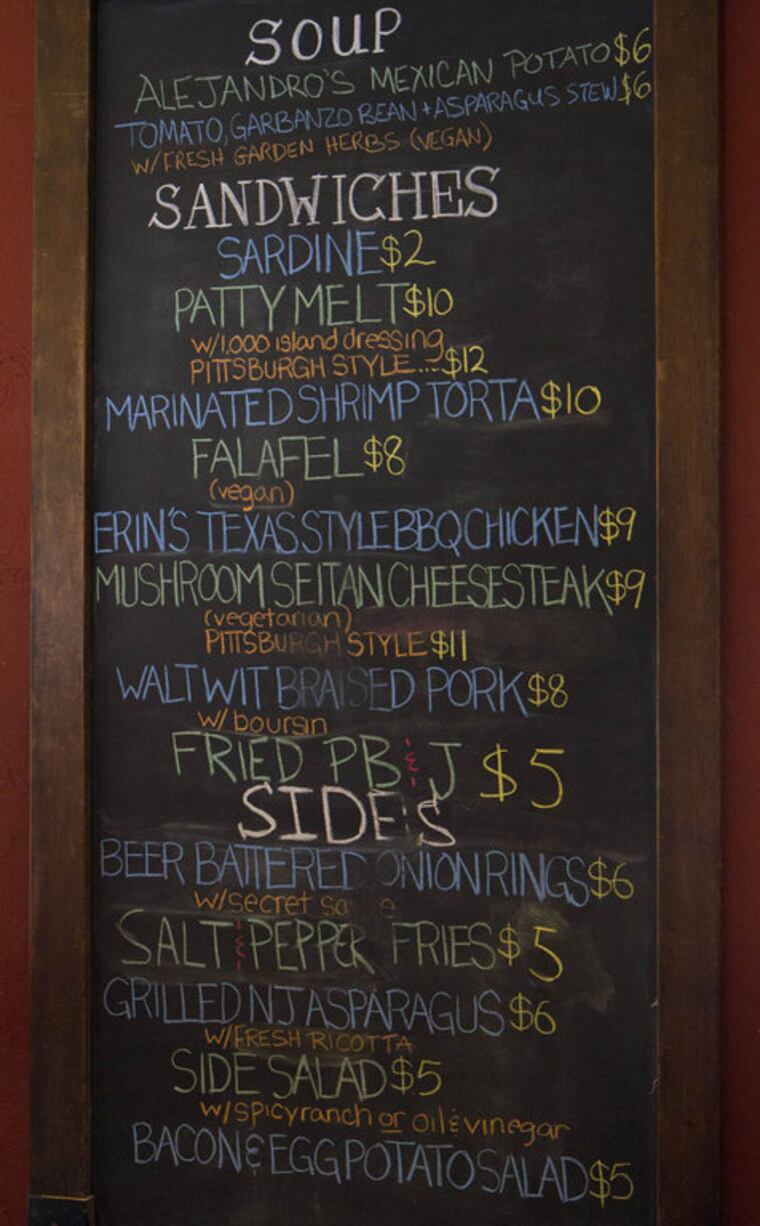 SOUP
ALEJANDRO'S MEXICAN POTATO $6
TOMATO, GARBANZO BEAN + ASPARAGUS STEW $6
W/FRESH GARDEN HERBS (VEGAN)
SANDWICHES
SARDINE $2
PATTY MELT $10
w/1,000 island dressing
PITTSBURGH STYLE....$12
MARINATED SHRIMP TORTA $10
FALAFEL $8
(vegan)
ERIN'S TEXAS STYLE BBQ CHICKEN $9
MUSHROOM SEITAN CHEESESTEAK $9
(vegetarian)
PITTSBURGH STYLE $11
WALT WIT BRAISED PORK $8
w/ boursin
FRIED PB & J $5
SIDES
BEER BATTERED ONION RINGS $6
w/secret
SALT & PEPPER FRIES $5
GRILLED NJ ASPARAGUS $6
W/FRESH RICOTTA
SIDE SALAD $5
w/spicy ranch or oil & vinegar
BACON & EGG POTATO SALAD $5